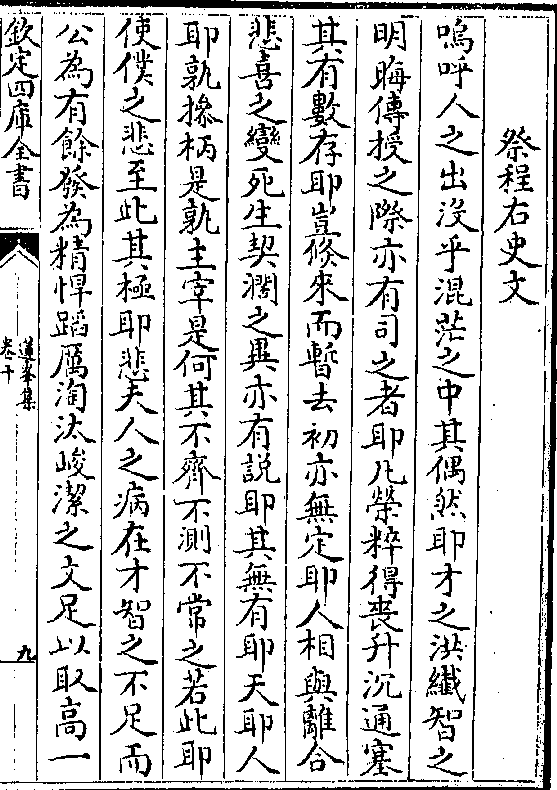 祭程右史文
嗚呼人之出沒乎混茫之中其偶然耶才之洪纖智之
明晦傳授之際亦有司之者耶凡榮粹得喪升沉通塞
其有數存耶豈倐來而暫去初亦無定耶人相與離合
悲喜之變死生契濶之異亦有説耶其無有耶天耶人
耶孰摻柄是孰主宰是何其不齊不測不常之若此耶
使僕之悲至此其極耶悲夫人之病在才智之不足而
公為有餘發為精悍蹈厲淘汰峻潔之文足以取高一
欽定四庫全書
蓮峯集
卷十
九